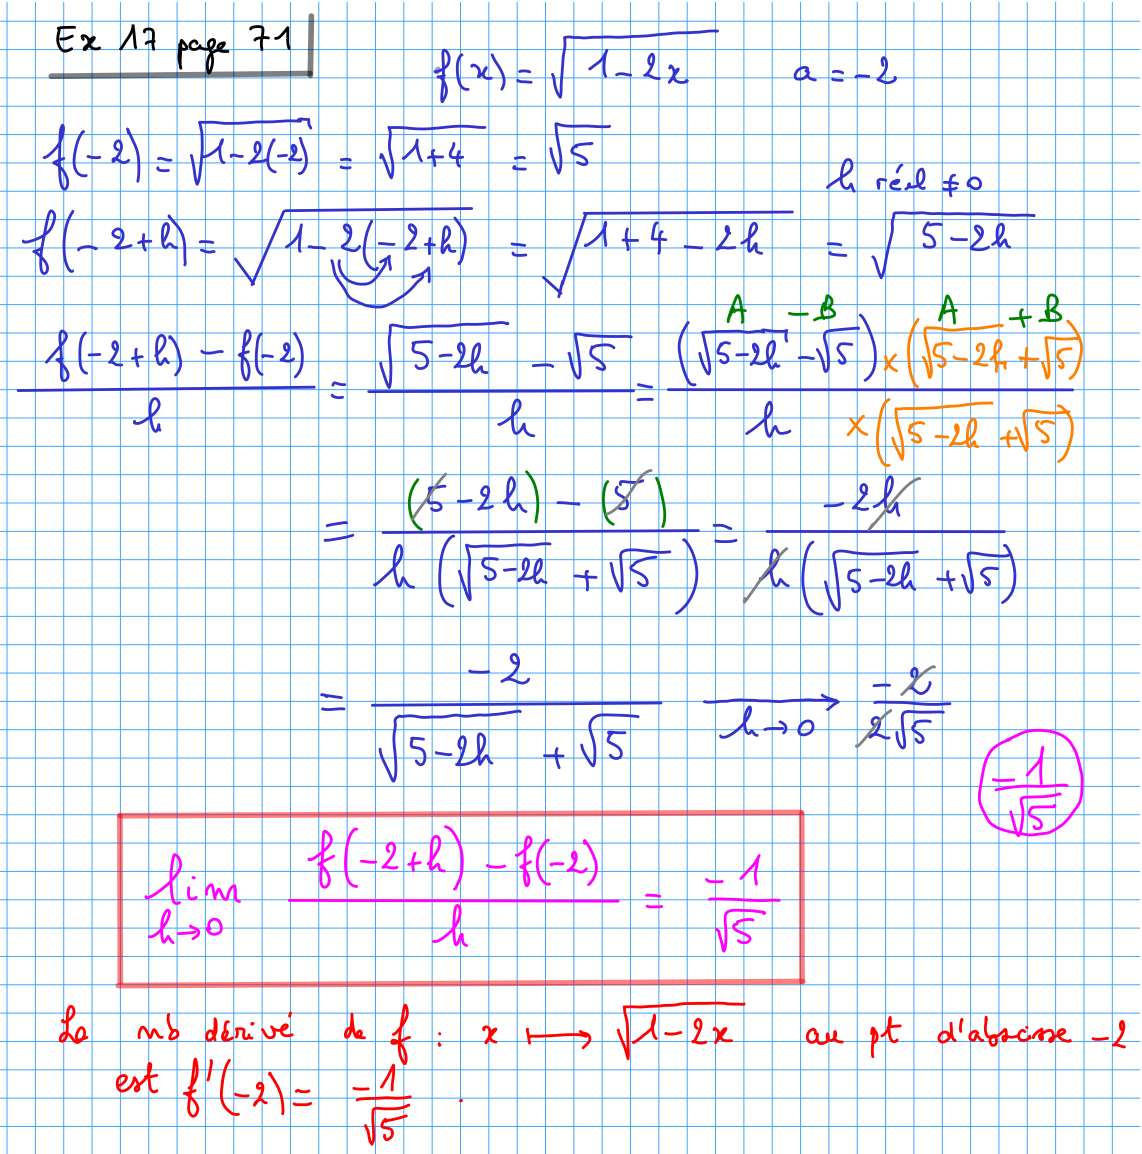 Ex 17 page 71
f(x) = √(1-2x)    a = -2
f(-2) = √(1-2(-2)) = √(1+4) = √5
h réel ≠ 0
f(-2+h) = √(1-2(-2+h)) = √(1+4-2h) = √(5-2h)
A - B    A + B
(f(-2+h) - f(-2))/h = (√(5-2h) - √5)/h = ((√(5-2h) - √5) × (√(5-2h) + √5))/(h × (√(5-2h) + √5))
= ((5-2h) - (5))/(h (√(5-2h) + √5)) = (-2h)/(h (√(5-2h) + √5))
= (-2)/(√(5-2h) + √5) → h→0 (-2)/(2√5)
(-1)/√5
lim h→0 (f(-2+h) - f(-2))/h = (-1)/√5
Le nb dérivé de f : x ↦ √(1-2x) au pt d'abscisse -2
est f'(-2) = (-1)/√5 .